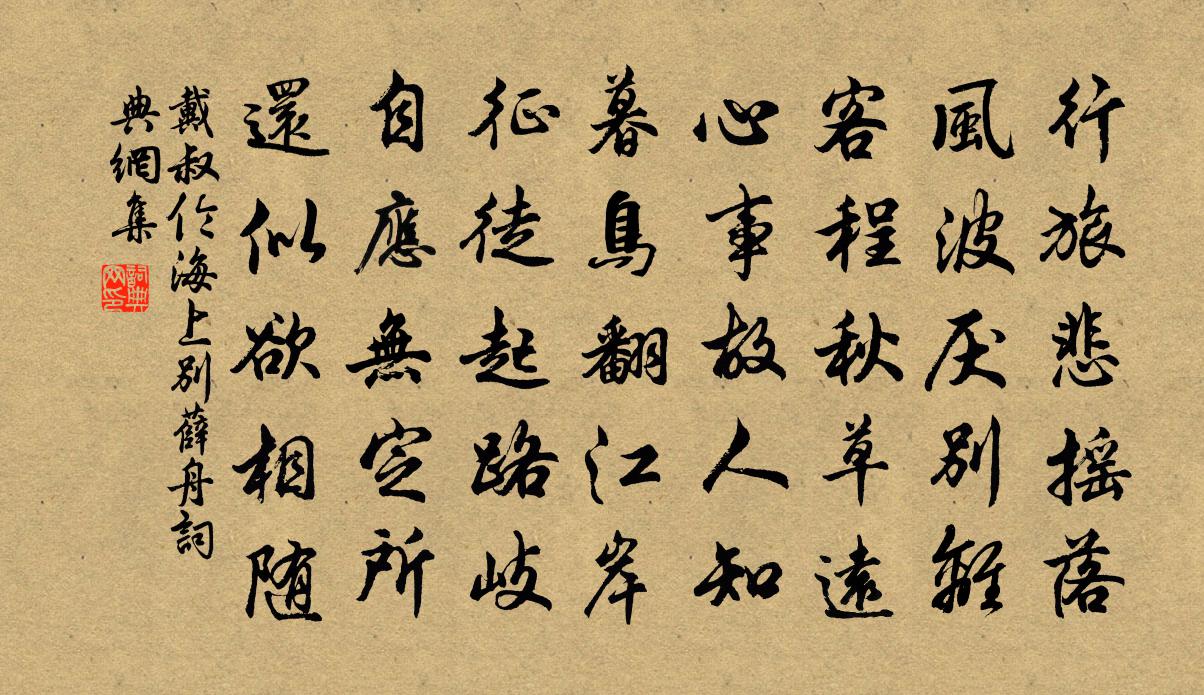 行旅悲摇落
風波厌別離
客程秋草遠
心事故人知
暮鳥翻江岸
征徒起路岐
自應無定所
還似欲相随
戴叔伦海上別薛舟詞
典網集
詞典
网印